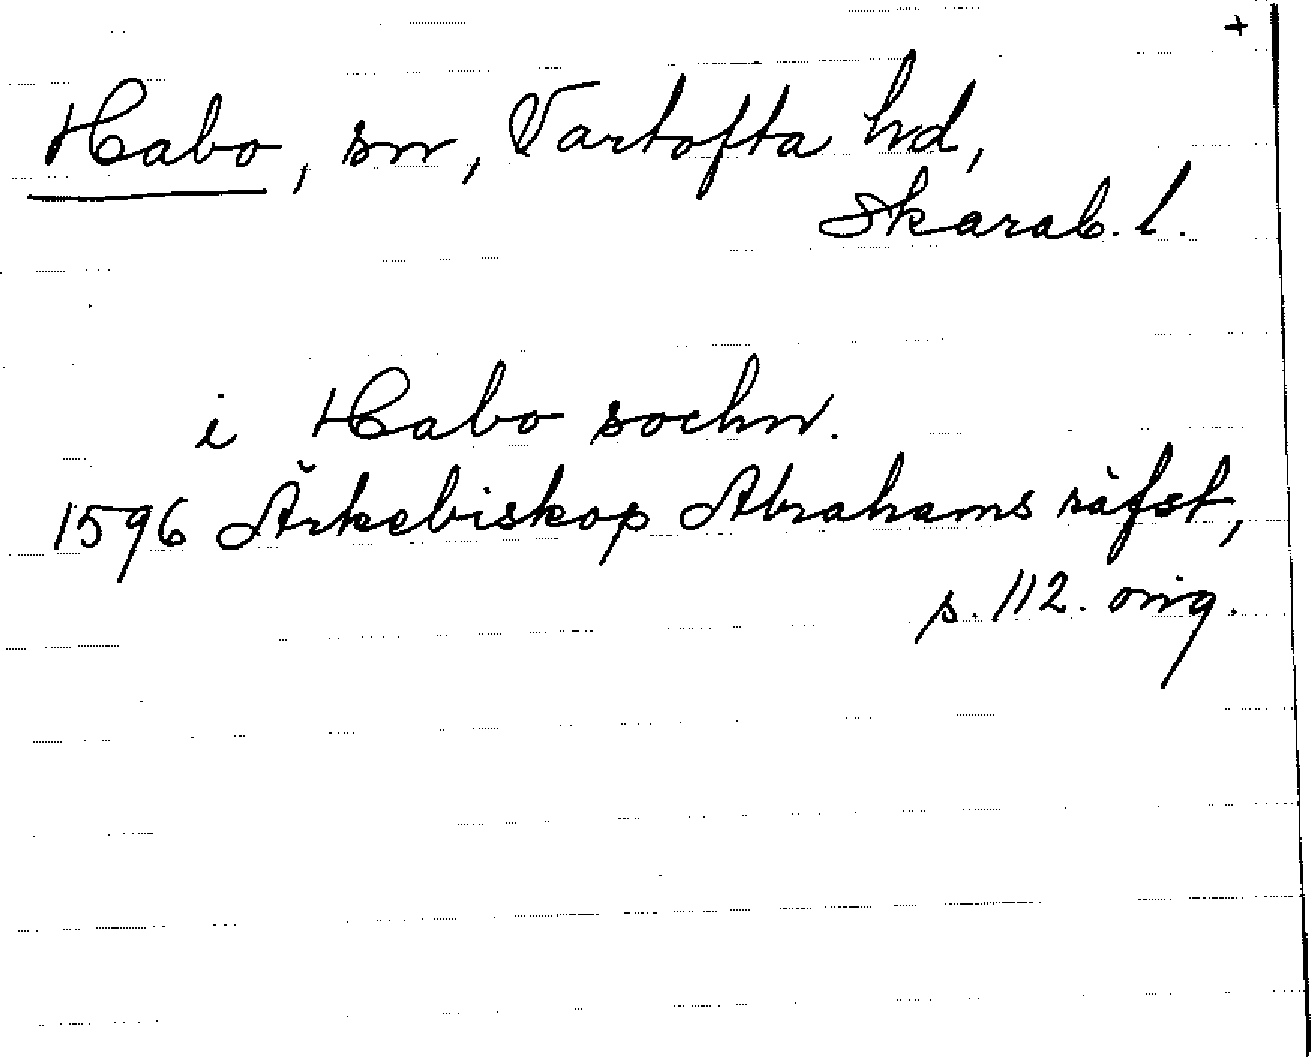 +
Habo, sn, Vartofta hd,
Skarab. l.
i Habo sochn.
1596 Ärkebiskop Abrahams räfst,
s. 112. orig.